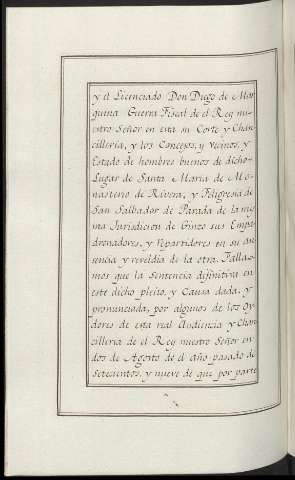 y el Licenciado Don Diego de Mar
quina Guerra Fiscal de el Rey nu-
estro Señor en esta su Corte y Chan
cilleria, y los Concejos, y Vecinos, y
Estado de hombres buenos de dicho-
Lugar de Santa Maria de Mo-
nasterio de Rivera, y Feligresia de
San Salbador de Parada de la mis
ma Jurisdicion de Ginzo sus Empa
dronadores, y repartidores en su au
sencia y reveldia de la otra. Falla-
mos que la Sentencia difinitiva en
este dicho pleito, y Causa dada, y
pronunciada, por algunos de los Oy
dores de esta real Audiencia y Chan
cilleria de el Rey nuestro Señor en
dos de Agosto de el año pasado de
Setecientos, y nueve de que por parte